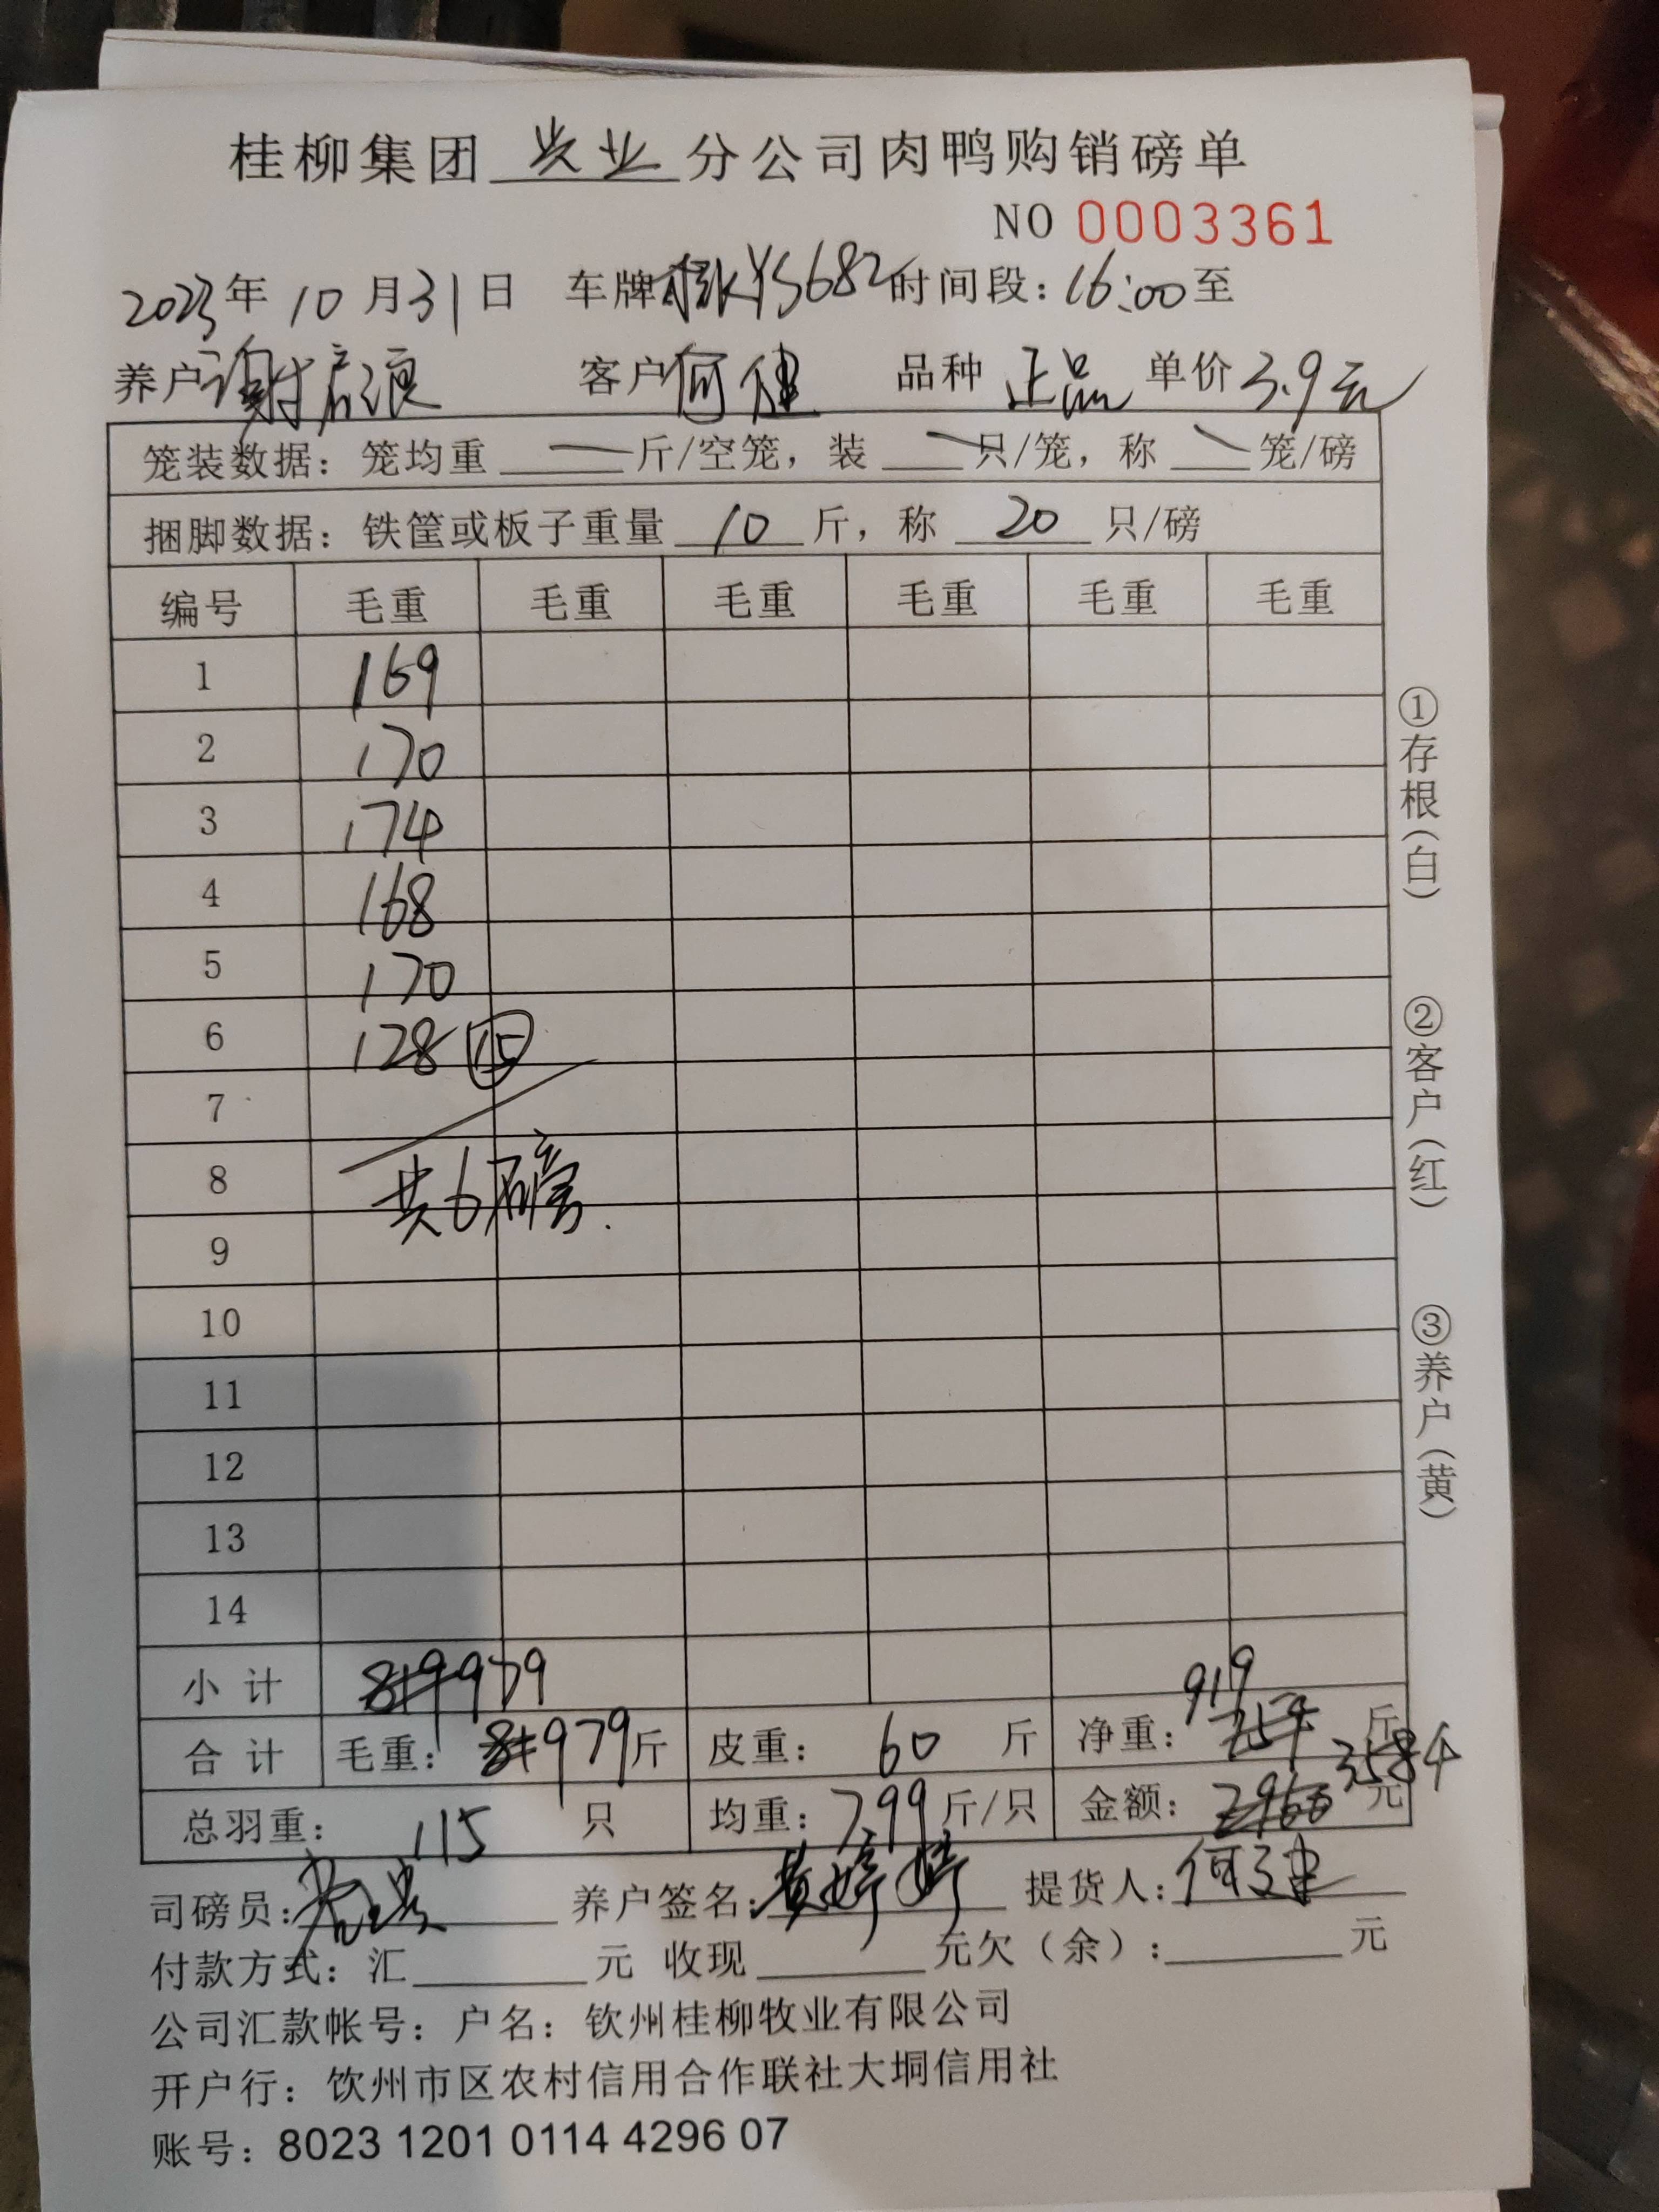 桂柳集团 兴业 分公司肉鸭购销磅单
NO 0003361
2023年 10月31日 车牌桂KYS682时间段:16:00至
养户 谢启浪 客户 何健 品种 正品 单价 3.9元
笼装数据:笼均重 — 斤/空笼,装 — 只/笼,称 — 笼/磅
捆脚数据:铁筐或板子重量 10 斤,称 20 只/磅
编号 毛重 毛重 毛重 毛重 毛重 毛重
1 169
2 170
3 174
4 168
5 170
6 128 15
7
8 共6磅.
9
10
11
12
13
14
小计 819 979
合计 毛重: 979斤 皮重: 60 斤 净重: 919 斤
总羽重: 115 只 均重: 7.99 斤/只 金额: 2960 3584 元
司磅员: 养户签名:黄婷婷 提货人:何建
付款方式:汇 元 收现 元欠(余): 元
公司汇款帐号:户名:钦州桂柳牧业有限公司
开户行:饮州市区农村信用合作联社大垌信用社
账号:8023 1201 0114 4296 07
①存根(白)
②客户(红)
③养户(黄)